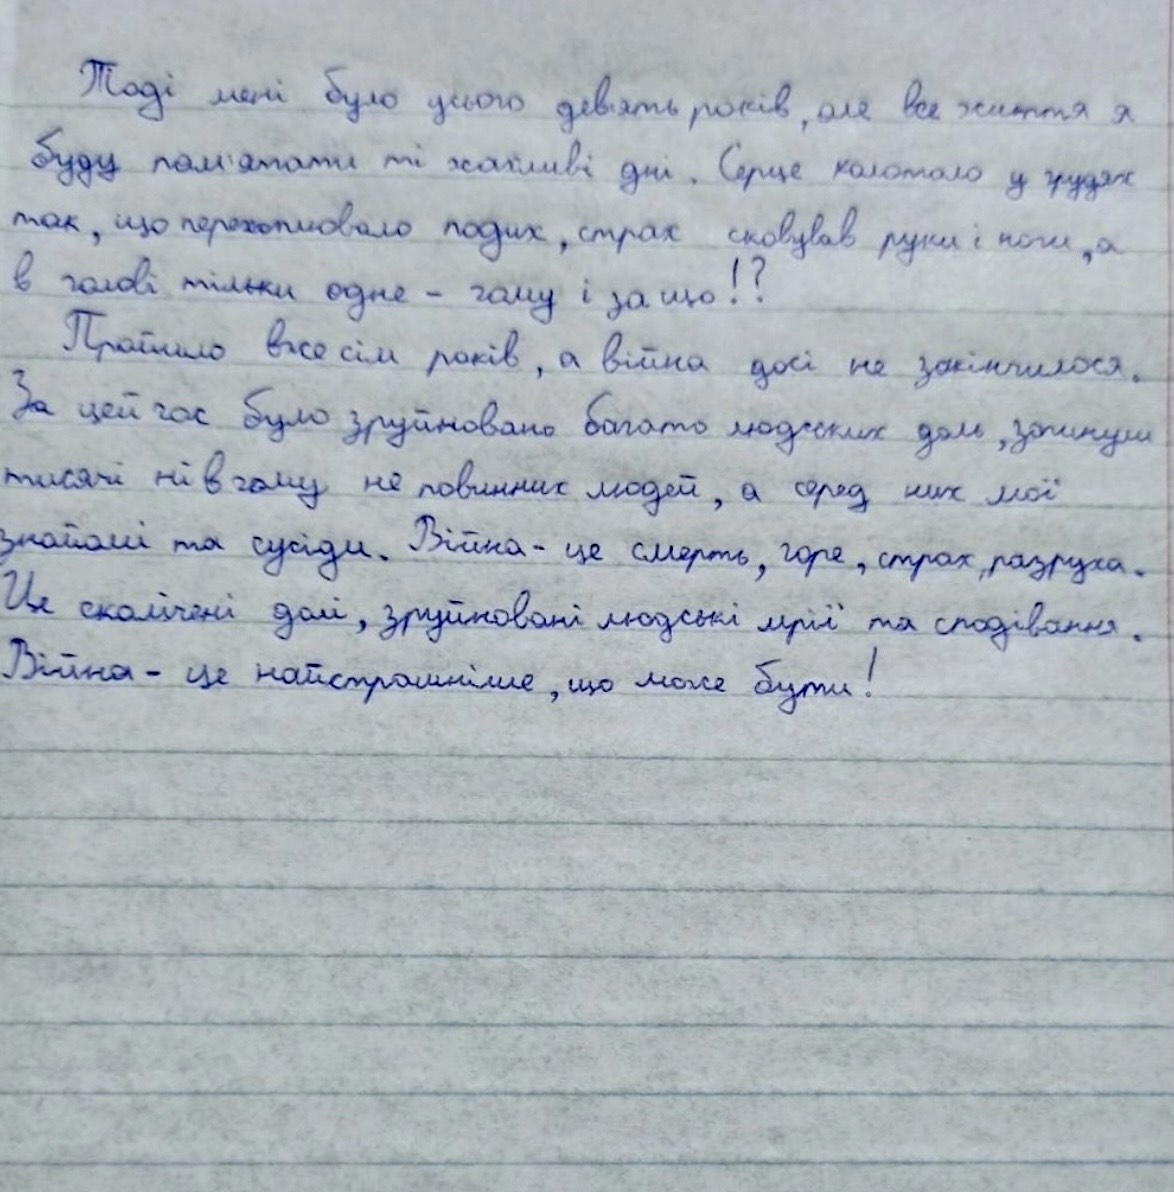 Тоді мені було усього девять років, але все життя я
буду пам'ятати ті жахливі дні. Серце калотало у грудях
так, що перехоплювало подих, страх сковував руки і ноги, а
в голові тільки одне - чому і за що!?
Пройшло вже сім років, а війна досі не закінчилося.
За цей час було зруйновано багато людських доль, загинули
тисячі ні в чому не повинних людей, а серед них мої
знайомі та сусіди. Війна - це смерть, горе, страх, разруха.
Це скалічені долі, зруйновані людські мрії та сподівання.
Війна - це найстрашніше, що може бути!